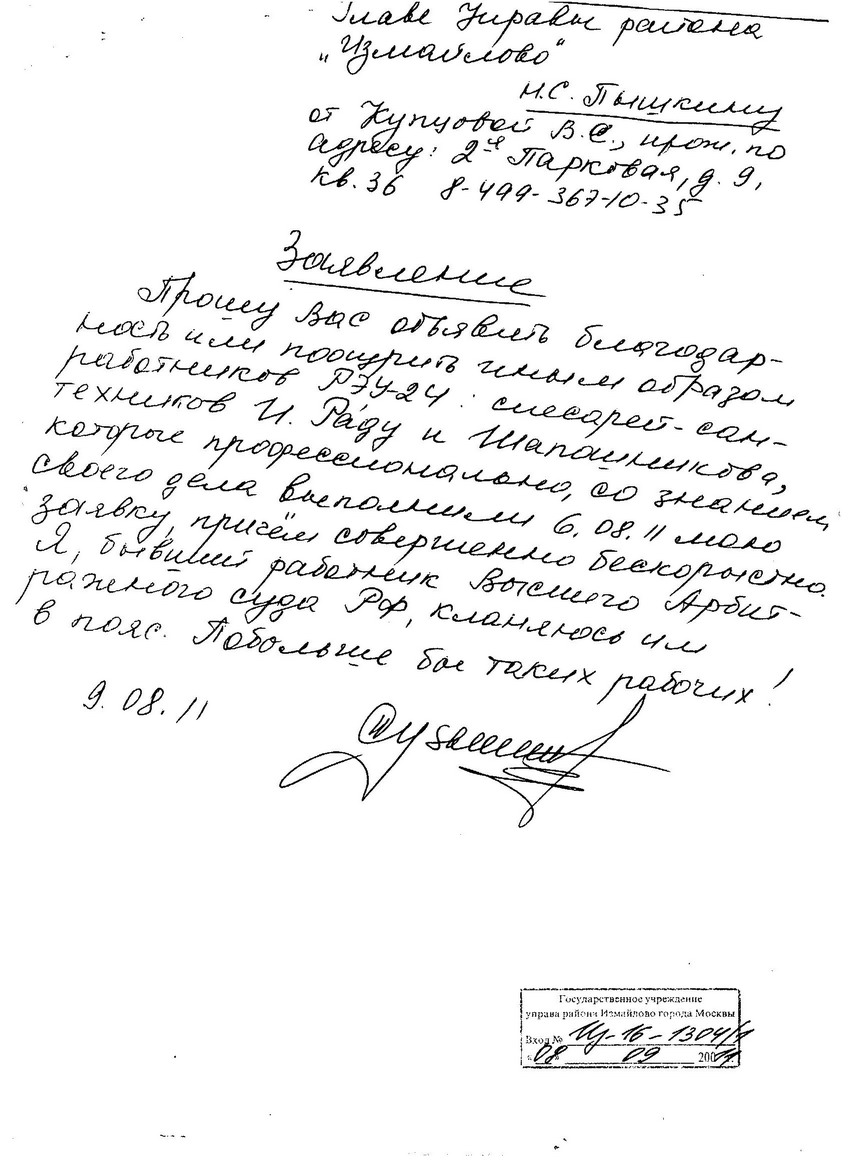 Главе Управы района
"Измайлово"
Н.С. Пышкину
от Купцовой В.С., прож. по
адресу: 2я Парковая, д. 9,
кв. 36 8-499-367-10-35
Заявление
Прошу Вас объявить благодар-
ность или поощрить иным образом
работников РЭУ-24: слесарей-сан-
техников И. Раду и Шапошникова,
которые профессионально, со знанием
своего дела выполнили 6.08.11 мою
заявку, причём совершенно бескорыстно.
Я, бывший работник Высшего Арбит-
ражного суда РФ, кланяюсь им
в пояс. Побольше бы таких рабочих!
9.08.11
Государственное учреждение
управа района Измайлово города Москвы
Вход № Из-16-1304/1
08 09 2011.